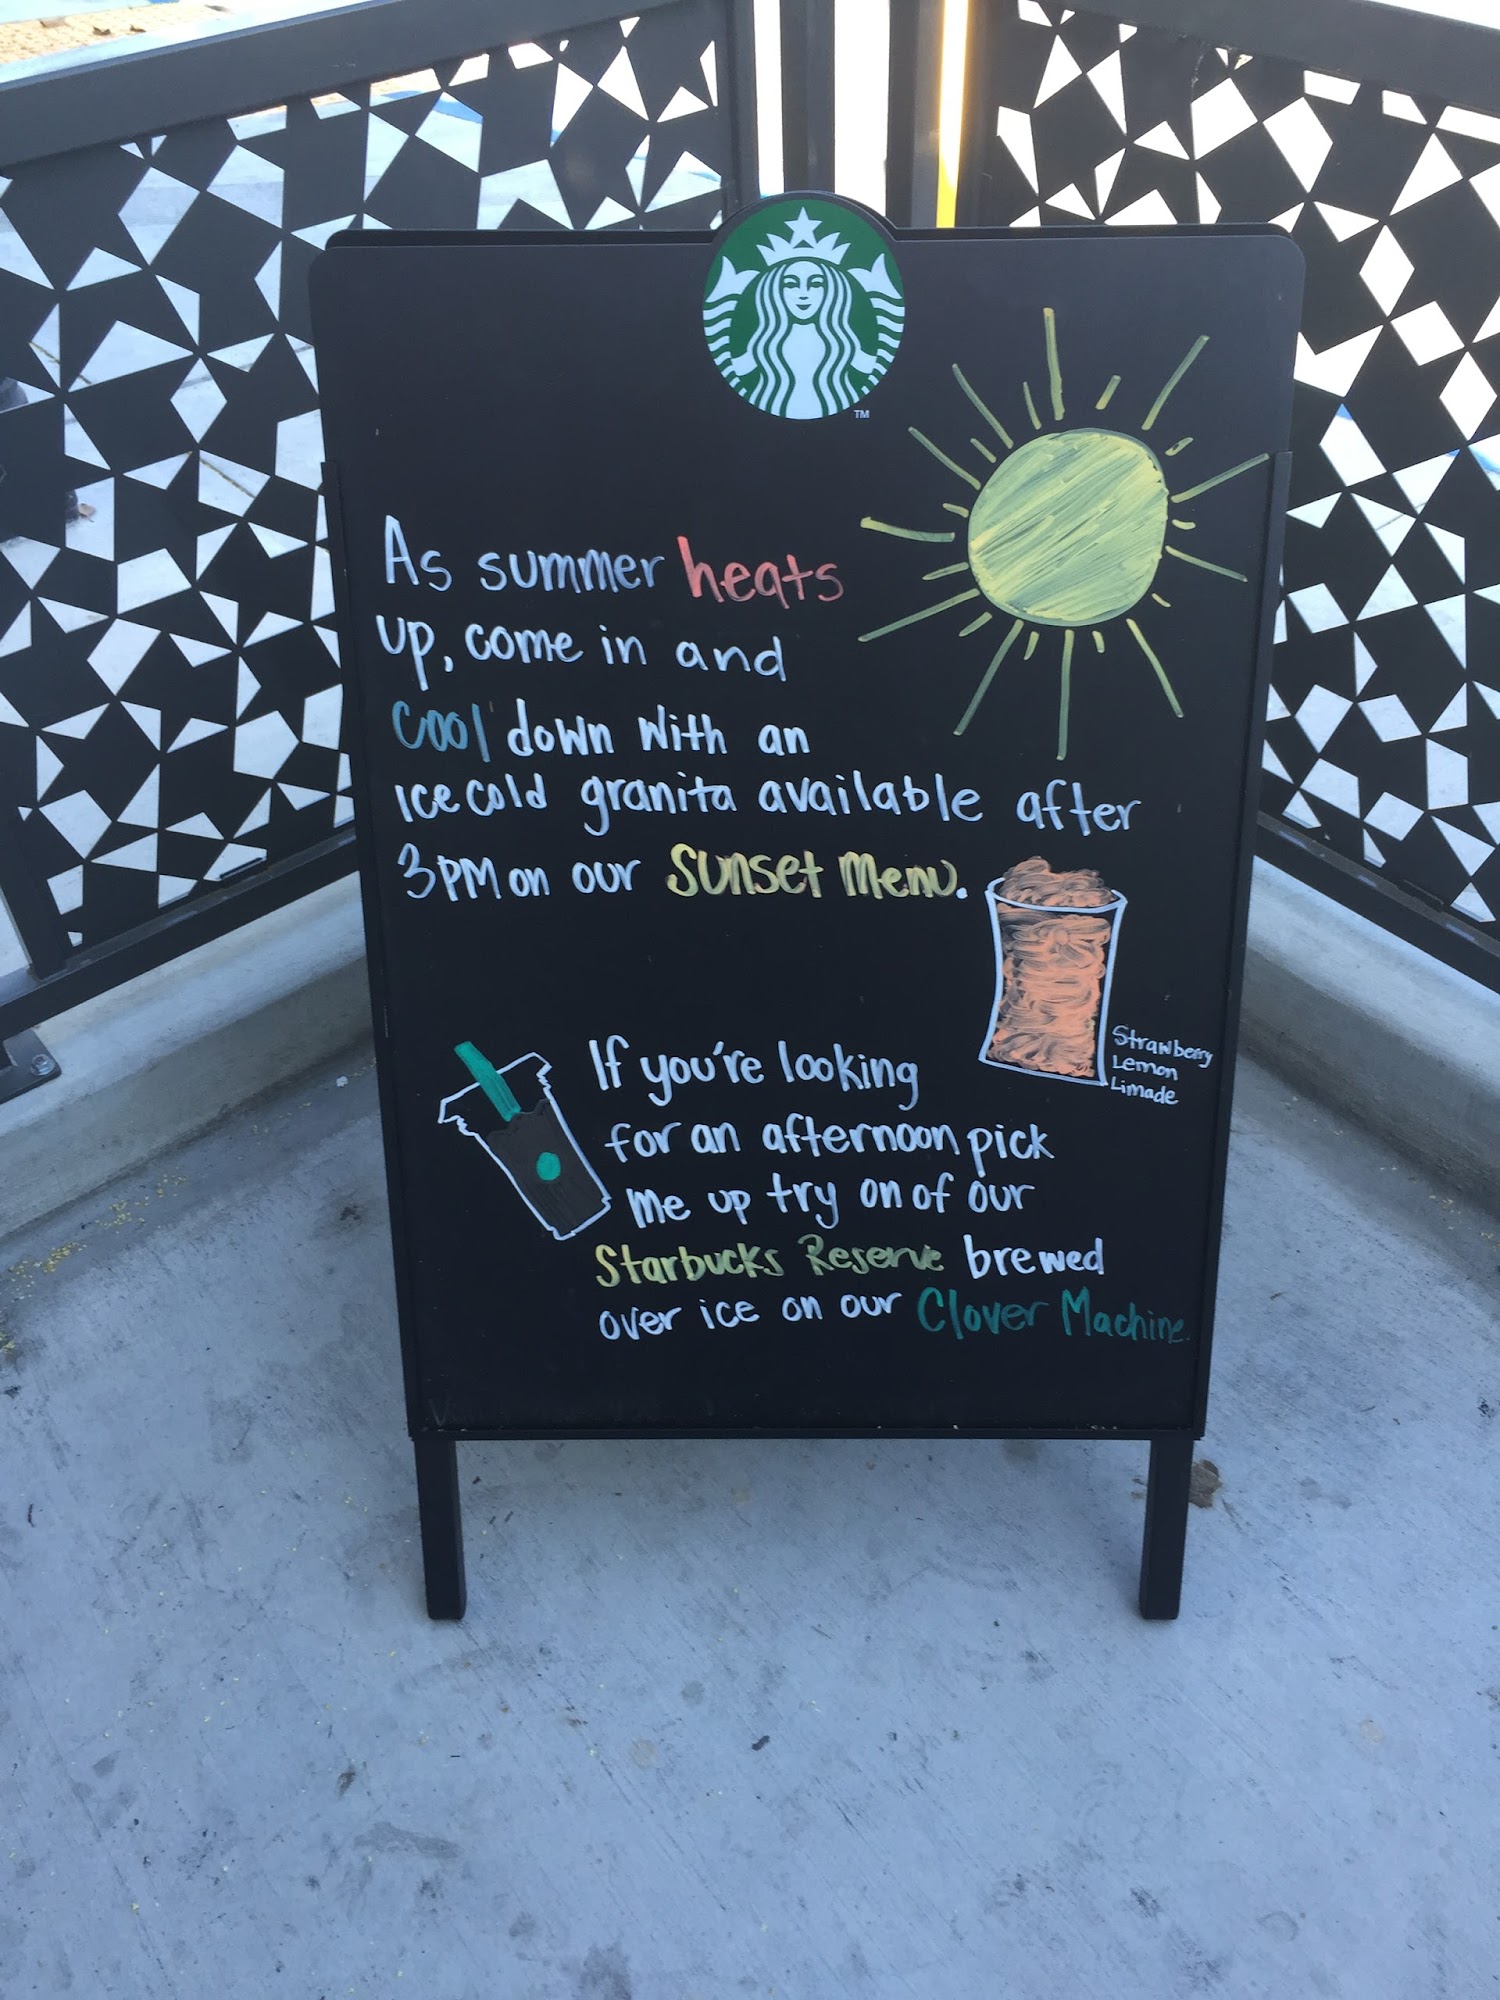 TM
As summer heats
up, come in and
cool down with an
ice cold granita available after
3PM on our sunset menu.
Strawberry
Lemon
Limade
If you're looking
for an afternoon pick
me up try on of our
Starbucks Reserve brewed
over ice on our Clover Machine.